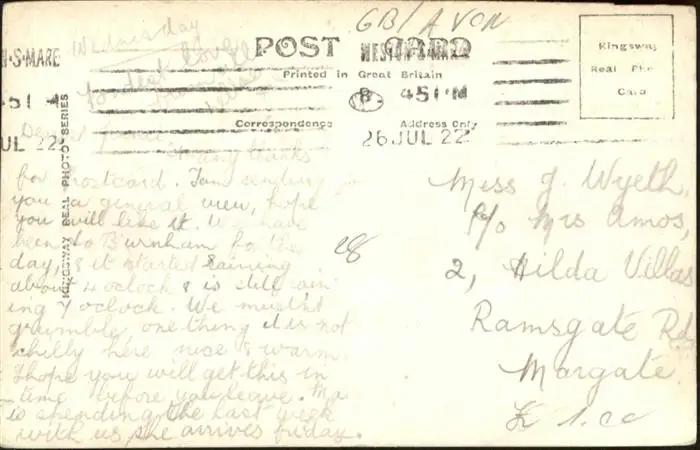 GB/AVON
Wednesday
POST CARD
Printed in Great Britain
Correspondence
Address Only
N-S-MARE
WESTON-S-MARE
451 M
45 PM
UL 22
26 JUL 22
Kingsway
Real Photo
Card
KINGSWAY REAL PHOTO SERIES
best love
Dear
Many thanks
for postcard. I am sending
you a general view, hope
you will like it. We have
been to Burnham for the
day, & it started raining
about 4 oclock & is still rain
ing 7 oclock. We mustnt
grumble, one thing it is not
chilly here nice & warm.
I hope you will get this in
time before you leave. Ma
is spending the last week
with us she arrives friday.
28
Miss J. Wyeth
c/o Mrs Amos,
2, Hilda Villas
Ramsgate Rd
Margate